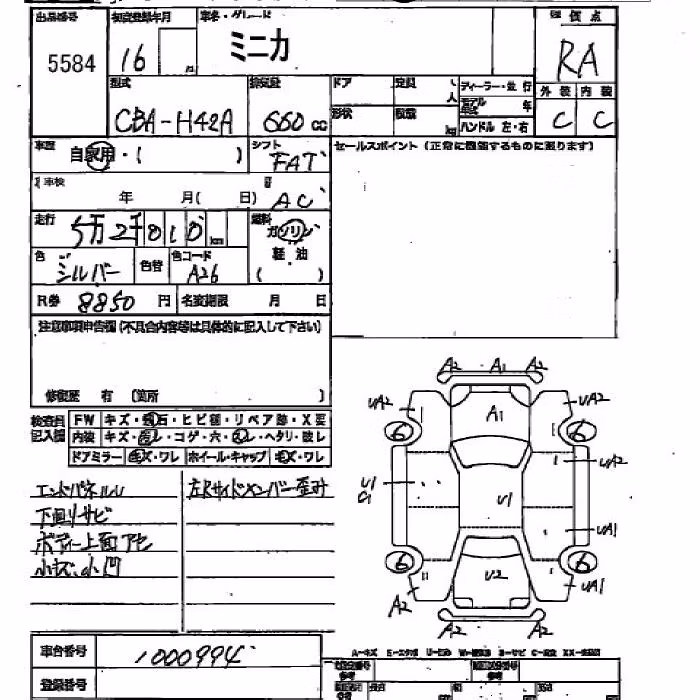 出品番号 初度登録年月 車名・グレード 評価点
5584 16 ミニカ RA
型式 排気量 ドア 定員 人 ディーラー・並行
CBA-H42A 660 cc 形状 積載 kg モデル 年 ハンドル 左・右
外装 内装
C C
車歴 自家用・( ) シフト FAT
セールスポイント (正常に機能するものに限ります)
車検 年 月( 日) AC
走行 5万2千010 km 燃料 ガソリン
軽油
( )
色 シルバー 色替 色コード A26
R券 8850 円 名変期限 月 日
注意事項申告欄(不具合内容等は具体的に記入して下さい)
修復歴 有 (箇所 )
検査員記入欄 FW キズ・飛石・ヒビ割・リペア跡・X要
内装 キズ・汚レ・コゲ・穴・スレ・ヘタリ・破レ
ドアミラー キズ・ワレ ホイール・キャップ キズ・ワレ
エンドパネルU 左Rサイドメンバー歪み
下回リサビ
ボディー上面アセ
小キズ.小凹
A2 A1 A2
UA2 A1 UA2
6 6
UA2
U1
G1
U1
UA1
6 6
U2
A2 UA1
A2 A2
車台番号 1000994
登録番号